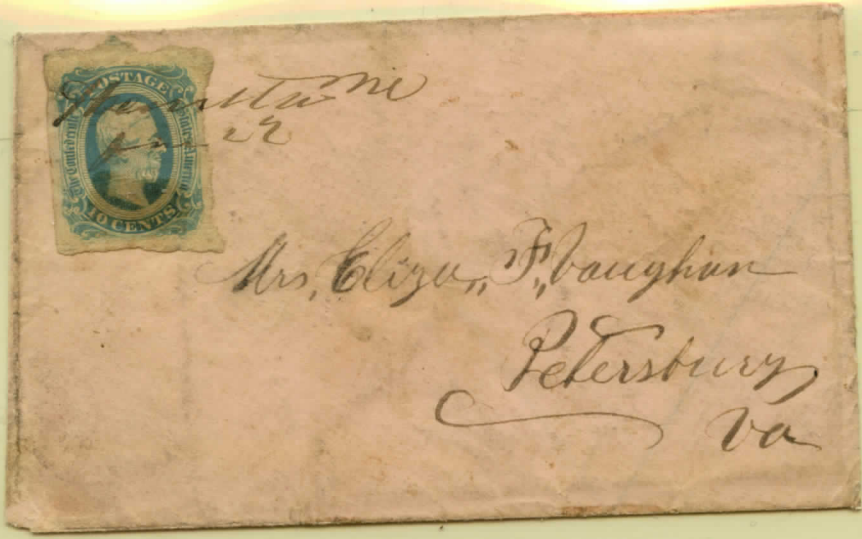 POSTAGE
The Confederate States of America
10 CENTS
22
Mrs, Eliza,, F,, Vaughan
Petersburg
Va